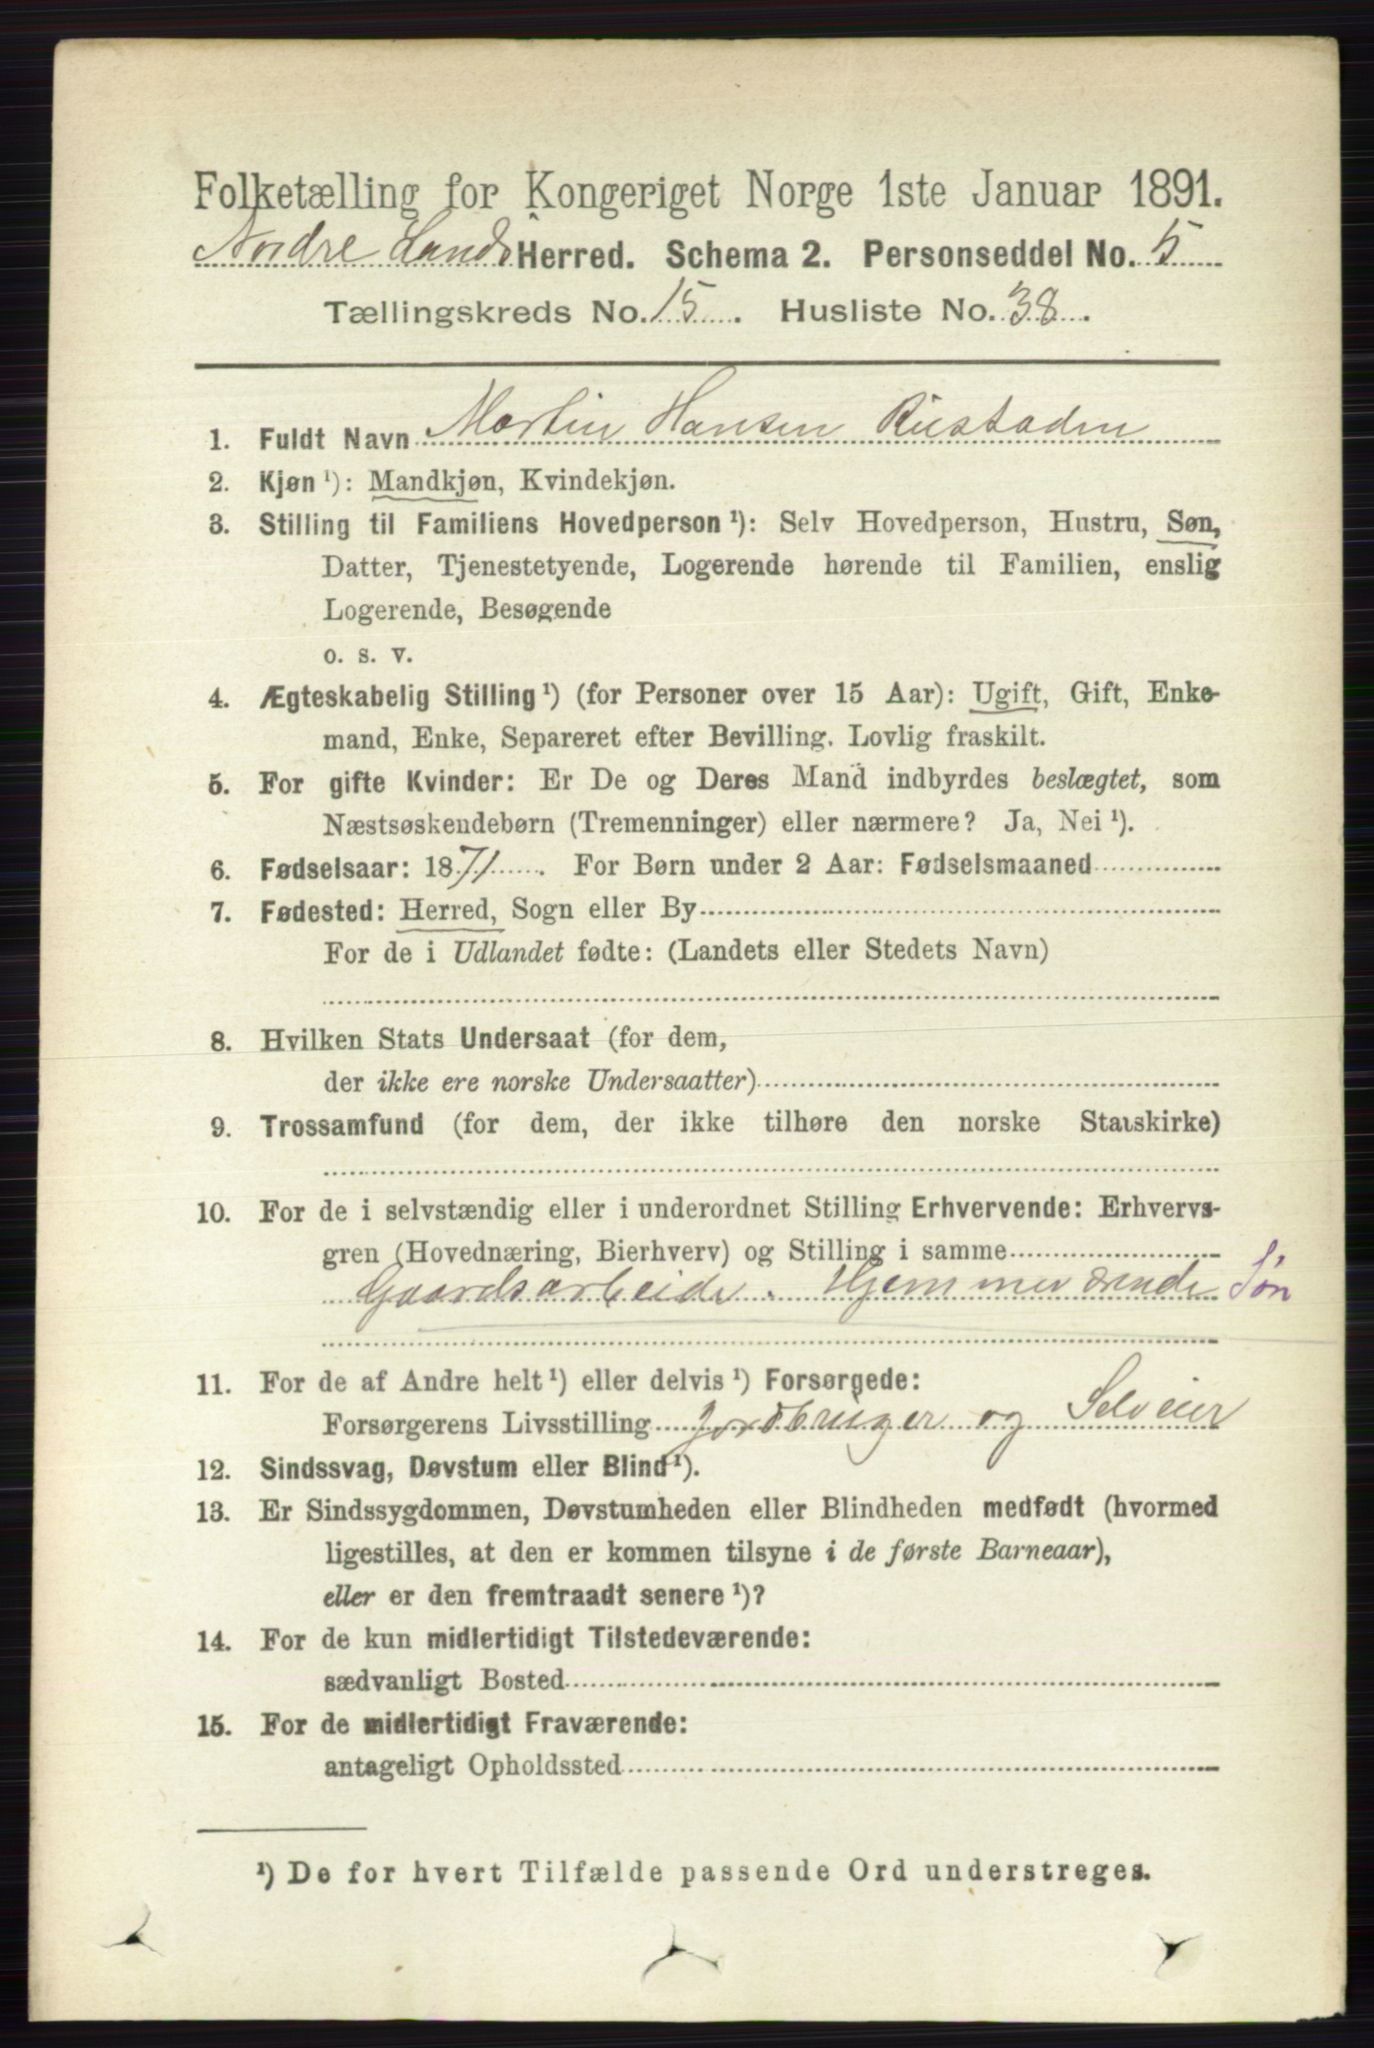 Folketælling for Kongeriget Norge 1ste Januar 1891.
Nordre Lands Herred. Schema 2. Personseddel No. 5
Tællingskreds No. 15. Husliste No. 38.
1. Fuldt Navn Martin Hansen Rustaden
2. Kjøn ¹): Mandkjøn, Kvindekjøn.
3. Stilling til Familiens Hovedperson ¹): Selv Hovedperson, Hustru, Søn,
Datter, Tjenestetyende, Logerende hørende til Familien, enslig
Logerende, Besøgende
o. s. v.
4. Ægteskabelig Stilling ¹) (for Personer over 15 Aar): Ugift, Gift, Enke-
mand, Enke, Separeret efter Bevilling. Lovlig fraskilt.
5. For gifte Kvinder: Er De og Deres Mand indbyrdes beslægtet, som
Næstsøskendebørn (Tremenninger) eller nærmere? Ja, Nei ¹).
6. Fødselsaar: 1871. For Børn under 2 Aar: Fødselsmaaned
7. Fødested: Herred, Sogn eller By
For de i Udlandet fødte: (Landets eller Stedets Navn)
8. Hvilken Stats Undersaat (for dem,
der ikke ere norske Undersaatter)
9. Trossamfund (for dem, der ikke tilhøre den norske Statskirke)
10. For de i selvstændig eller i underordnet Stilling Erhvervende: Erhvervs-
gren (Hovednæring, Bierhverv) og Stilling i samme
Gaardsarbeide. Hjemmeværende Søn
11. For de af Andre helt ¹) eller delvis ¹) Forsørgede:
Forsørgerens Livsstilling Jordbruger og Selveier
12. Sindssvag, Døvstum eller Blind ¹).
13. Er Sindssygdommen, Døvstumheden eller Blindheden medfødt (hvormed
ligestilles, at den er kommen tilsyne i de første Barneaar),
eller er den fremtraadt senere ¹)?
14. For de kun midlertidigt Tilstedeværende:
sædvanligt Bosted
15. For de midlertidigt Fraværende:
antageligt Opholdssted
¹) De for hvert Tilfælde passende Ord understreges.